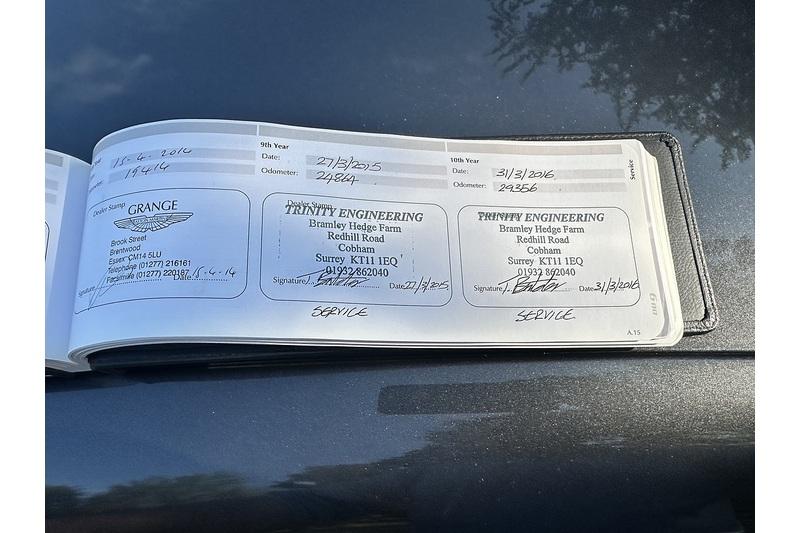 15-4-2014
19414
Dealer Stamp
GRANGE
ASTON MARTIN
Brook Street
Brentwood
Essex CM14 5LU
Telephone (01277) 216161
Facsimile (01277) 220187
Signature Date 15-4-14
9th Year
Date: 27/3/2015
Odometer: 24864
Dealer Stamp
TRINITY ENGINEERING
Bramley Hedge Farm
Redhill Road
Cobham
Surrey KT11 1EQ
01932 862040
Signature Date 27/3/2015
SERVICE
10th Year
Date: 31/3/2016
Odometer: 29356
TRINITY ENGINEERING
Bramley Hedge Farm
Redhill Road
Cobham
Surrey KT11 1EQ
01932 862040
Signature Date 31/3/2016
SERVICE
Service
A.15